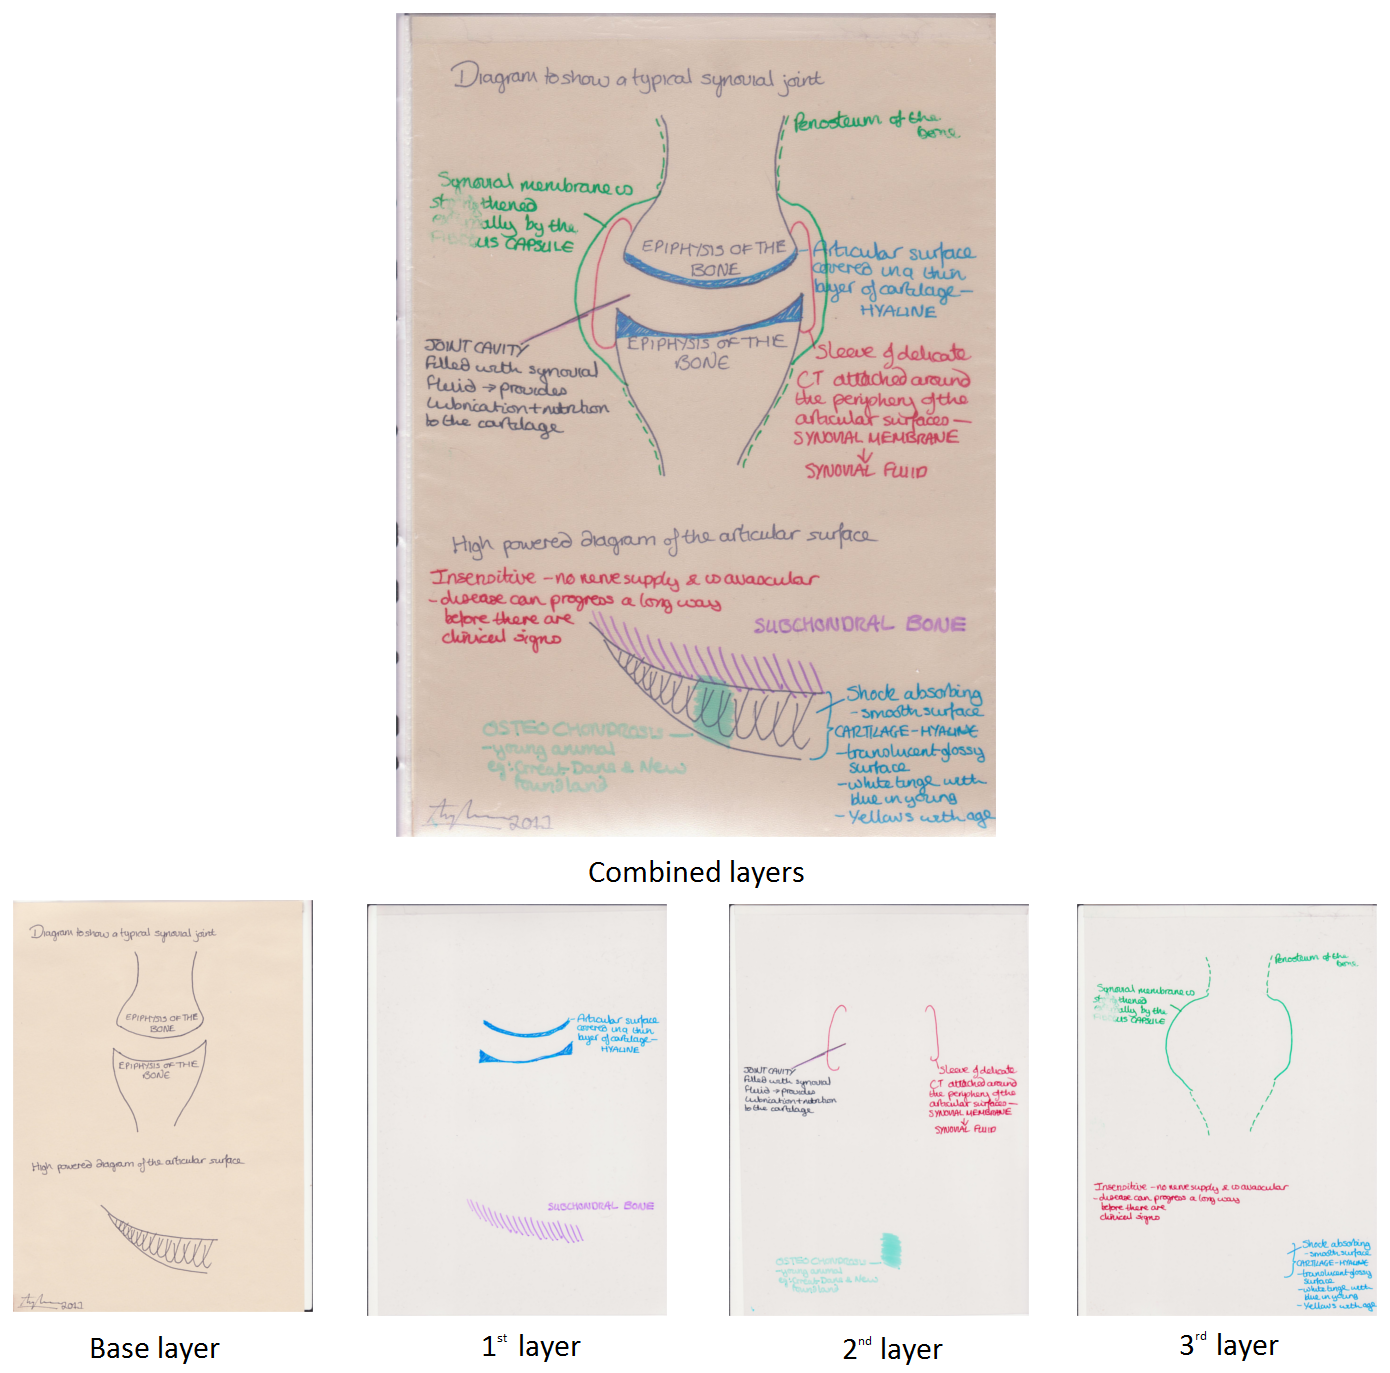 Diagram to show a typical synovial joint
Periosteum of the
bone
Synovial membrane is
strengthened
ally by the
FIBROUS CAPSULE
EPIPHYSIS OF THE
BONE
Articular surface
covered in a thin
layer of cartilage -
HYALINE
JOINT CAVITY
filled with synovial
fluid → provides
lubrication + nutrition
to the cartilage
EPIPHYSIS OF THE
BONE
Sleeve of delicate
CT attached around
the periphery of the
articular surfaces -
SYNOVIAL MEMBRANE
↓
SYNOVIAL FLUID
High powered diagram of the articular surface
Insensitive - no nerve supply & is avascular
- disease can progress a long way
before there are
clinical signs
SUBCHONDRAL BONE
OSTEOCHONDROSIS
- young animal
eg: Great Dane & New
foundland
Shock absorbing
- smooth surface
CARTILAGE - HYALINE
- translucent glossy
surface
- white tinge with
blue in young
- Yellows with age
2011
Combined layers
Diagram to show a typical synovial joint
EPIPHYSIS OF THE
BONE
EPIPHYSIS OF THE
BONE
High powered diagram of the articular surface
2011
Base layer
Articular surface
covered in a thin
layer of cartilage -
HYALINE
SUBCHONDRAL BONE
1st layer
JOINT CAVITY
filled with synovial
fluid → provides
lubrication + nutrition
to the cartilage
Sleeve of delicate
CT attached around
the periphery of the
articular surfaces -
SYNOVIAL MEMBRANE
↓
SYNOVIAL FLUID
OSTEOCHONDROSIS
- young animal
eg: Great Dane & New
foundland
2nd layer
Periosteum of the
bone
Synovial membrane is
strengthened
ally by the
FIBROUS CAPSULE
Insensitive - no nerve supply & is avascular
- disease can progress a long way
before there are
clinical signs
Shock absorbing
- smooth surface
CARTILAGE - HYALINE
- translucent glossy
surface
- white tinge with
blue in young
- Yellows with age
3rd layer